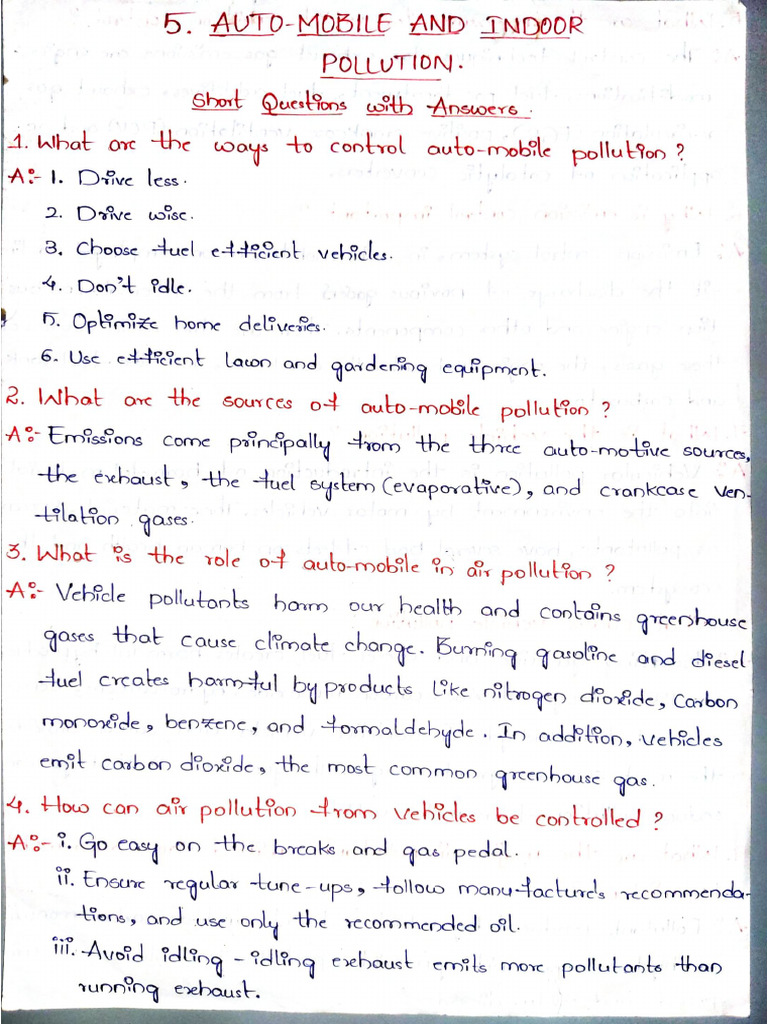 5. AUTO-MOBILE AND INDOOR
POLLUTION.
Short Questions with Answers.
1. What are the ways to control auto-mobile pollution?
A:- 1. Drive less.
2. Drive wise.
3. Choose fuel efficient vehicles.
4. Don't idle.
5. Optimize home deliveries.
6. Use efficient lawn and gardening equipment.
2. What are the sources of auto-mobile pollution?
A:- Emissions come principally from the three auto-motive sources,
the exhaust, the fuel system (evaporative), and crankcase ven-
tilation gases.
3. What is the role of auto-mobile in air pollution?
A:- Vehicle pollutants harm our health and contains greenhouse
gases that cause climate change. Burning gasoline and diesel
fuel creates harmful by products like nitrogen dioxide, carbon
monoxide, benzene, and formaldehyde. In addition, vehicles
emit carbon dioxide, the most common greenhouse gas.
4. How can air pollution from vehicles be controlled?
A:- i. Go easy on the breaks and gas pedal.
ii. Ensure regular tune-ups, follow manufacture's recommenda-
tions, and use only the recommended oil.
iii. Avoid idling - idling exhaust emits more pollutants than
running exhaust.